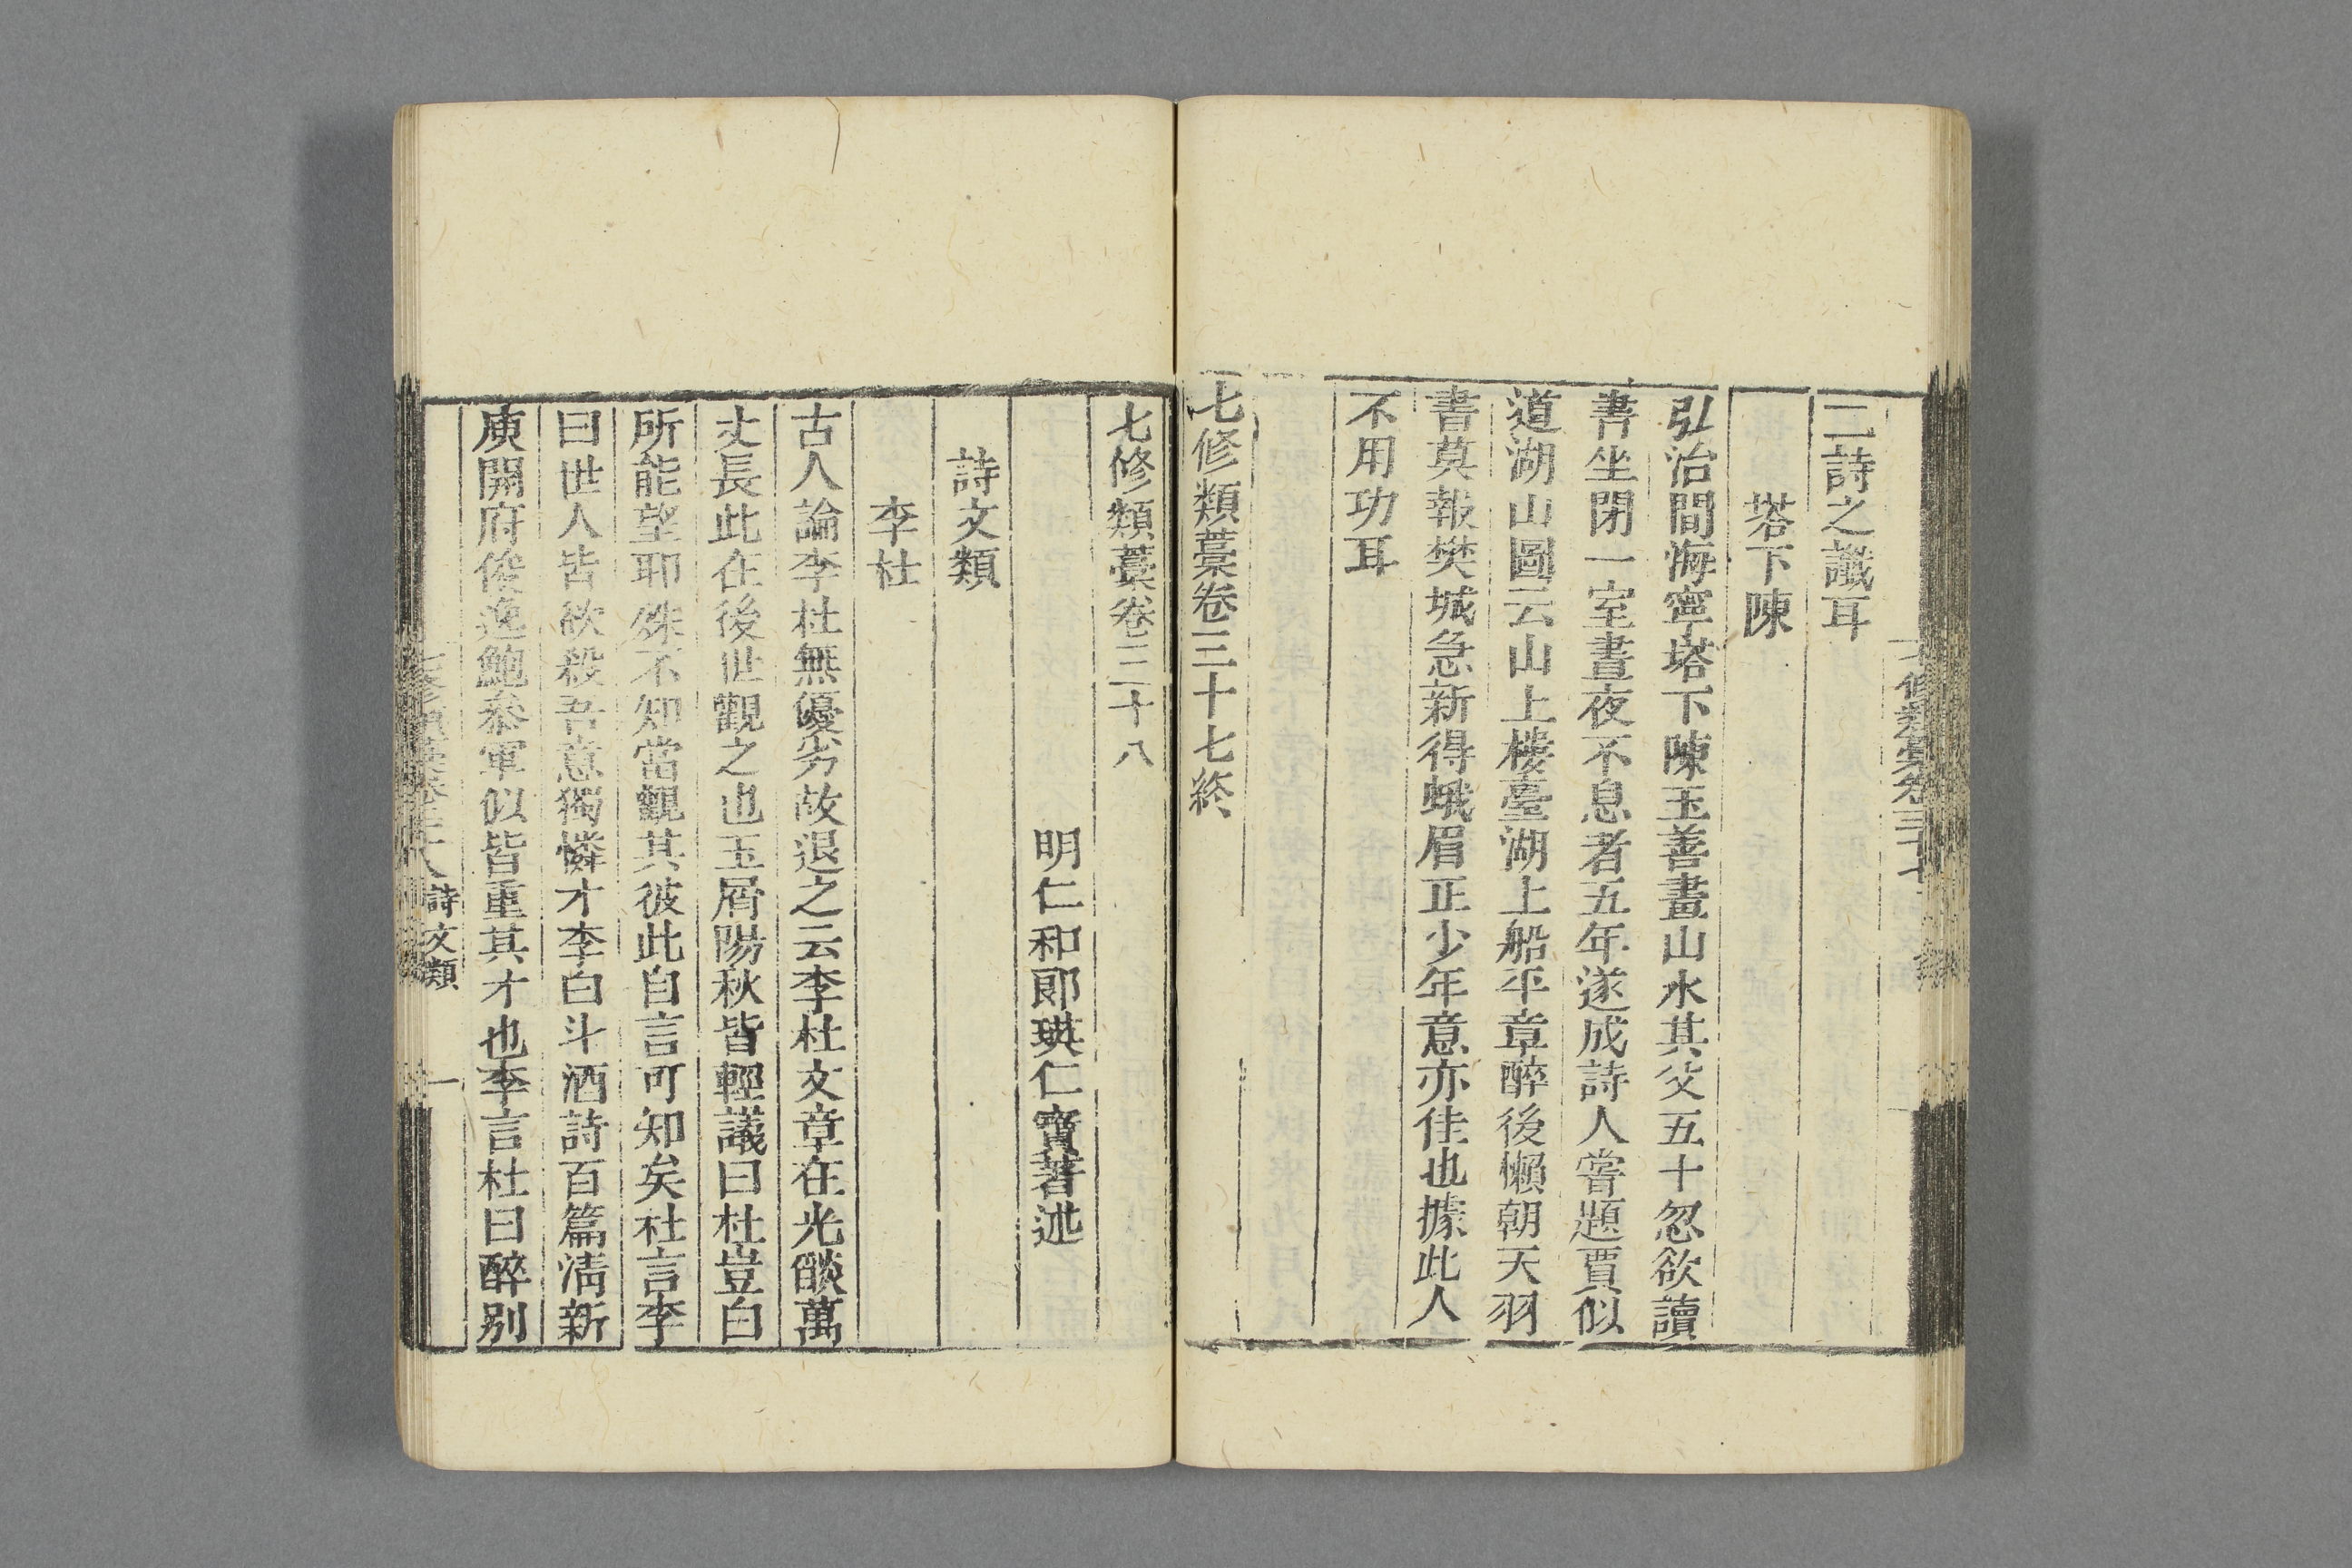 二詩之讖耳
塔下陳
弘治間海寧塔下陳玉善畫山水其父五十忽欲讀
書坐閉一室晝夜不息者五年遂成詩人嘗題賈似
道湖山圖云山上樓臺湖上船平章醉後懶朝天羽
書莫報樊城急新得蛾眉正少年意亦佳也據此人
不用功耳
七修類藁卷三十七終
七修類藁卷三十八
明仁和郎瑛仁寶著述
詩文類
李杜
古人論李杜無優劣故退之云李杜文章在光燄萬
丈長此在後世觀之也玉屑陽秋皆輕議曰杜豈白
所能望耶殊不知當觀其彼此自言可知矣杜言李
曰世人皆欲殺吾意獨憐才李白斗酒詩百篇清新
庾開府俊逸鮑叅軍似皆重其才也李言杜曰醉别
詩文類 一